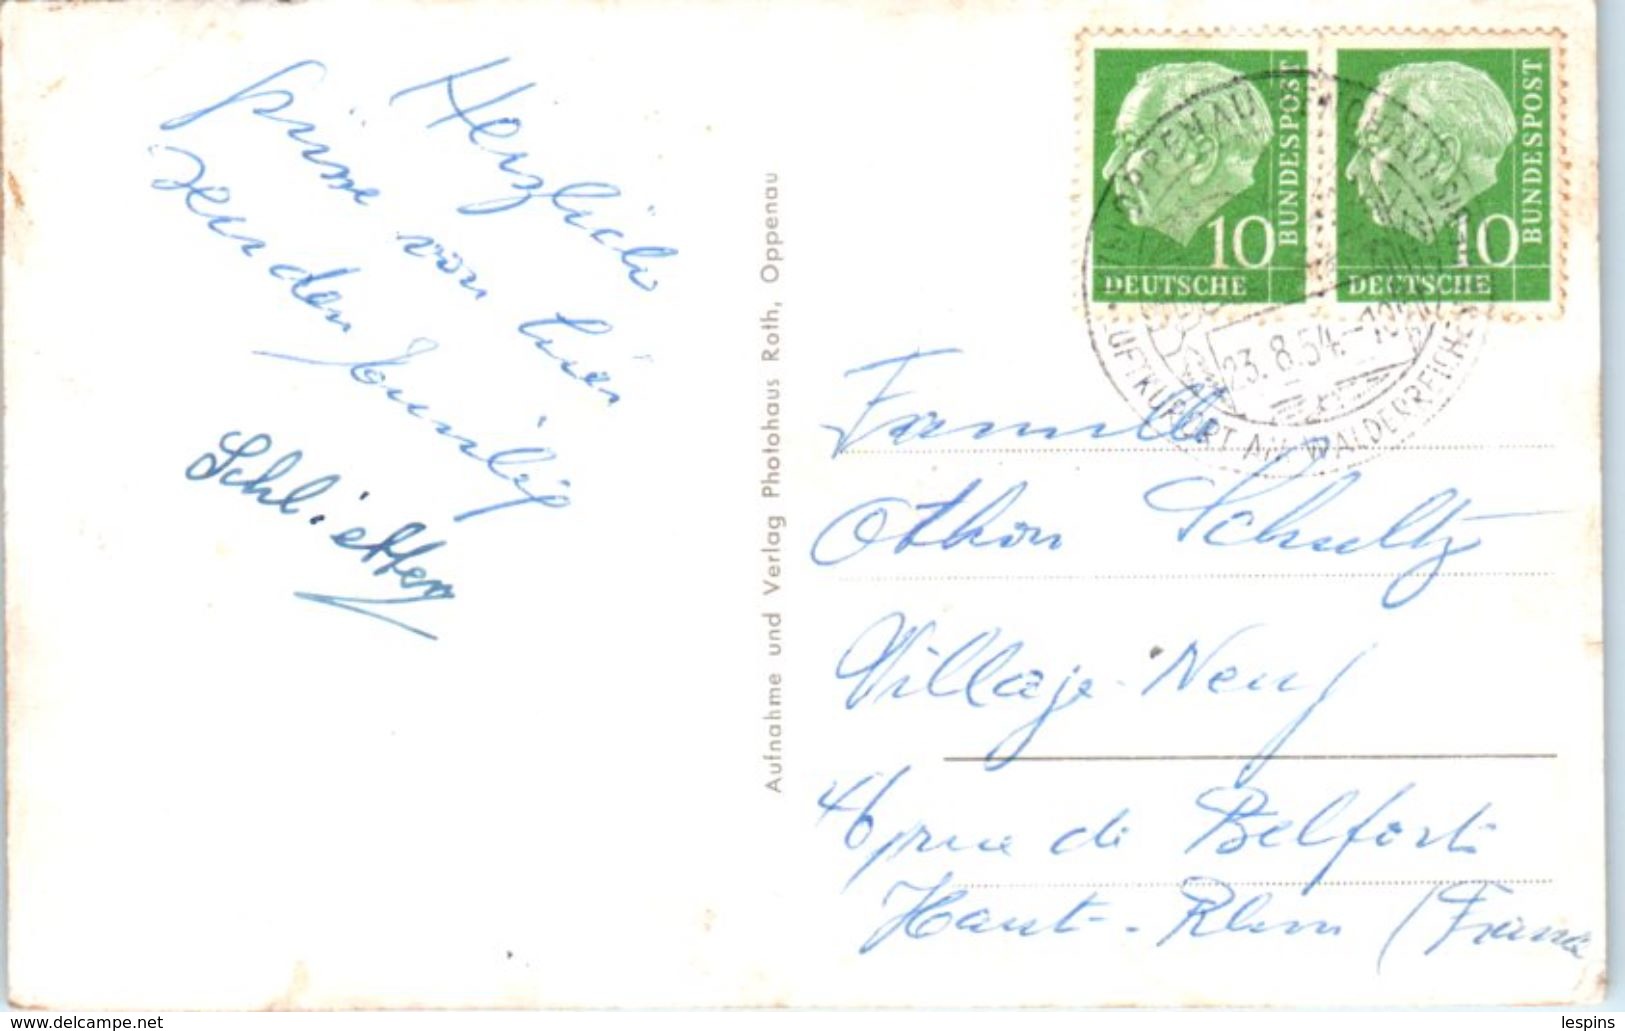 Herzliche
grüsse von hier
senden Familie
Schlietter
Aufnahme und Verlag Photohaus Roth, Oppenau
10
DEUTSCHE
BUNDESPOST
10
DEUTSCHE
BUNDESPOST
OPPENAU
23.8.54
LUFTKURORT AM WALDERREICHE
Famille
Othon Schultz
Village-Neuf
46, rue de Belfort
Haut-Rhin (France
www.delcampe.net
lespins